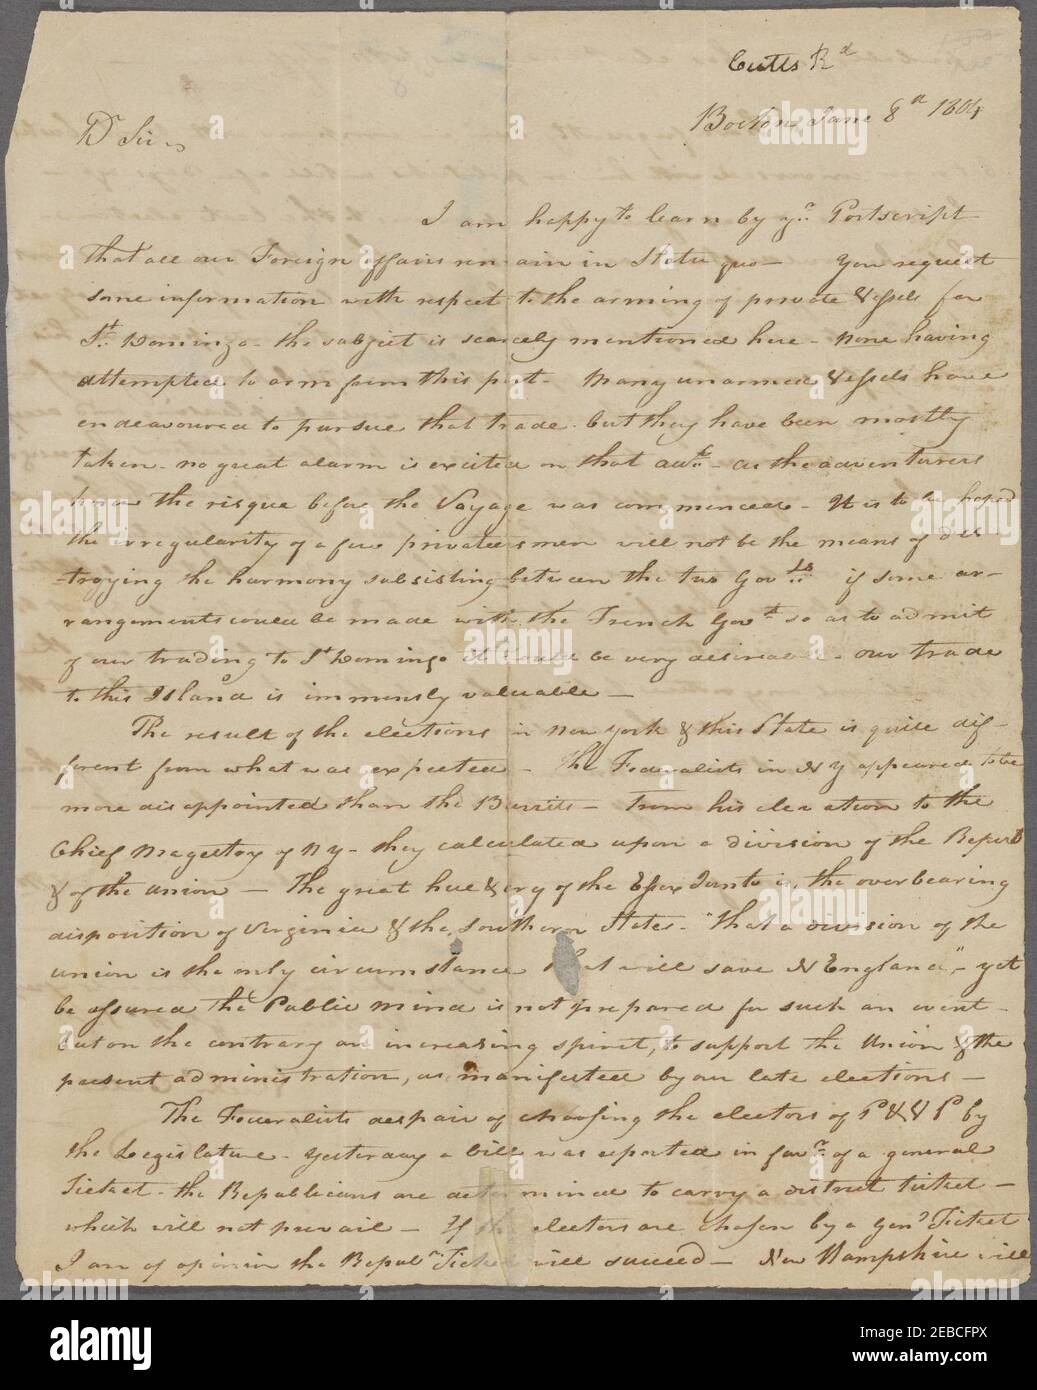 Cutts Rd
Boston June 8th 1804
Dr Sir
I am happy to learn by yr. Postscript
that all our Foreign affairs remain in Statu quo — You request
some information with respect to the arming of private Vessels for
St. Domingo - the subject is scarcely mentioned here - none having
attempted to arm from this port - Many unarmed Vessels have
endeavoured to pursue that trade - but they have been mostly
taken - no great alarm is excited on that - as the adventurers
know the risque before the Voyage was commenced - It is to be hoped
the irregularity of a few privateersmen will not be the means of des
-troying the harmony subsisting between the two Govts. if some ar-
rangements could be made with the French Govt. so as to admit
of our trading to St Domingo it would be very desireable - our trade
to this Island is immensly valuable —
The result of the elections in New York & this State is quite dif-
ferent from what was expected - the Federalists in N Y appeared to be
more disappointed than the Burrites - from his elevation to the
Chief Magestracy of N Y - they calculated upon a division of the Repubs
& of the union — The great hue & cry of the Essex Junto is, the overbearing
disposition of Virginia & the Southern States - "that a division of the
union is the only circumstance that will save N England", - yet
be assured the Public mind is not prepared for such an event -
but on the contrary an increasing spirit, to support the Union & the
present administration, as manifested by our late elections —
The Federalists despair of choosing the electors of P & V P by
the Legislature - yesterday a bill was reported in favr. of a general
Ticket - the Republicans are determined to carry a district ticket —
which will not prevail — If the electors are chosen by a Genl Ticket
I am of opinion the Republn Ticket will succeed — New Hampshire will
alamy
alamy
Image ID: 2EBCFPX
www.alamy.com